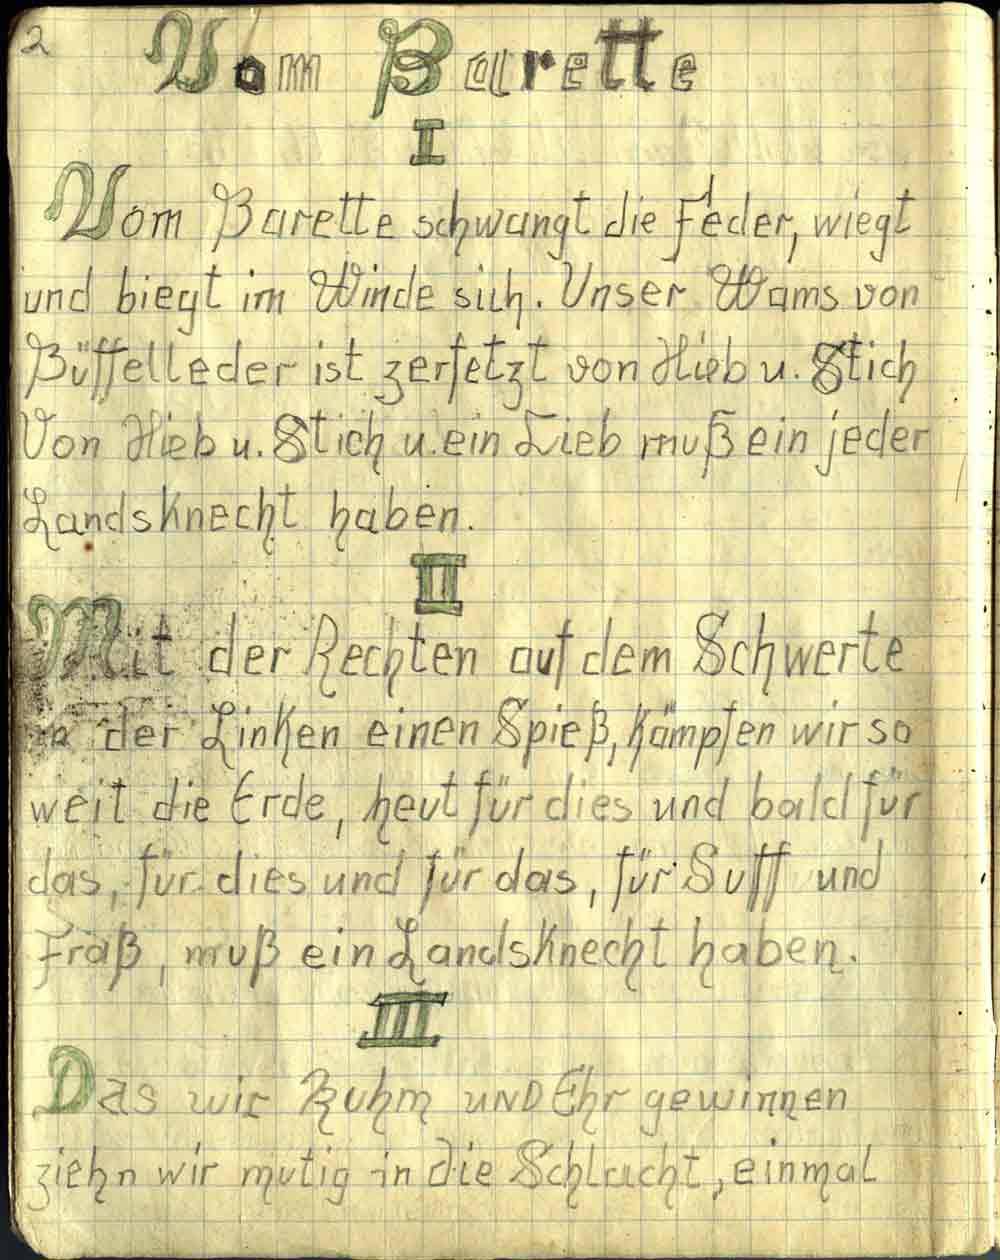 2
Vom Barette
I
Vom Barette schwangt die Feder, wiegt
und biegt im Winde sich. Unser Wams von
Büffelleder ist zerfetzt von Hieb u. Stich
Von Hieb u. Stich u. ein Lieb muß ein jeder
Landsknecht haben.
II
Mit der Rechten auf dem Schwerte
in der Linken einen Spieß, kämpfen wir so
weit die Erde, heut für dies und bald für
das, für dies und für das, für Suff und
Fraß, muß ein Landsknecht haben.
III
Das wir Ruhm und Ehr gewinnen
ziehn wir mutig in die Schlacht, einmal